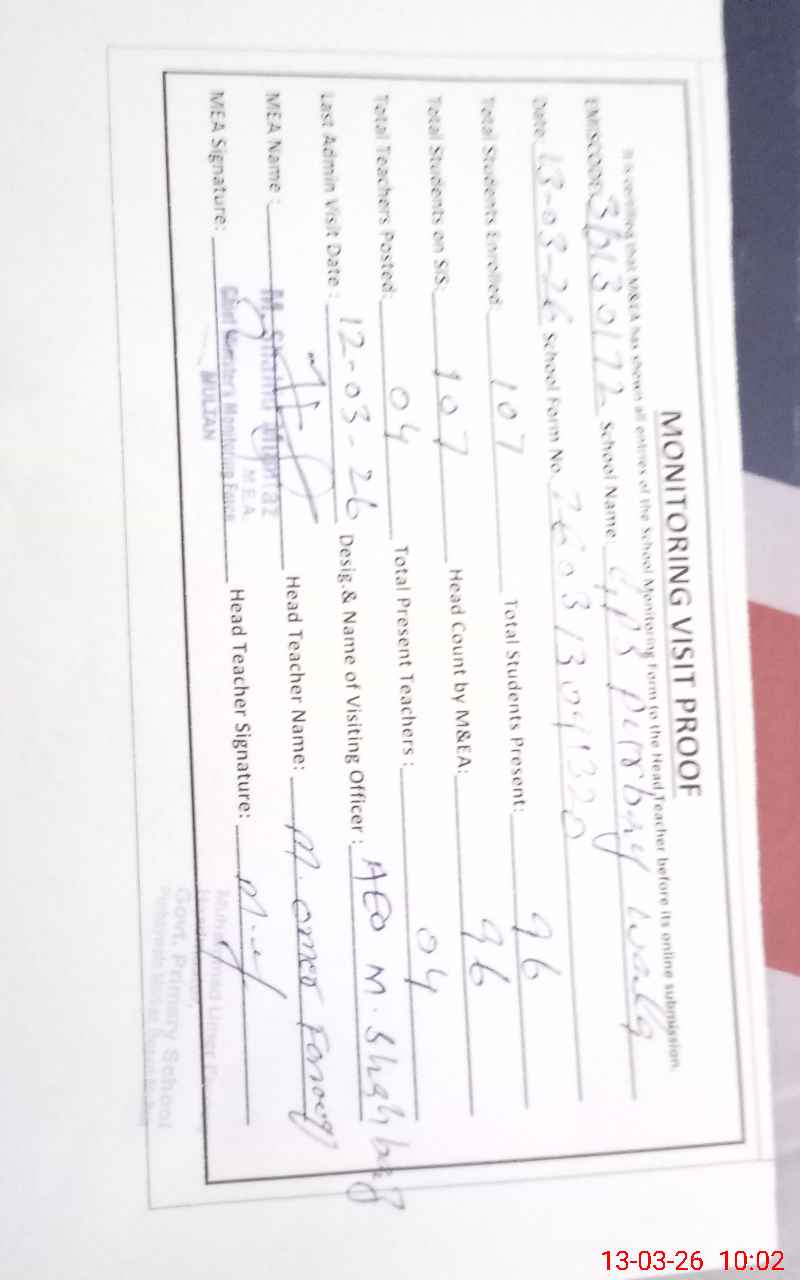 MONITORING VISIT PROOF
It is certified that M&EA has shown all entries of the School Monitoring Form to the Head Teacher before its online submission.
EMISCODE: 36130172 School Name:
Date 13-03-26 School Form No.
Total Students Enrolled: 107 Total Students Present: 96
Total Students on SIS: 107 Head Count by M&EA: 96
Total Teachers Posted: 04 Total Present Teachers : 04
Last Admin Visit Date : 12-03-26 Desig.& Name of Visiting Officer : AEO M. Shahbaz
MEA Name : Head Teacher Name: M. Omer Farooq
M.E.A.
MEA Signature: Head Teacher Signature:
Chief Minister's Monitoring Force
MULTAN
Govt. Primary School
13-03-26 10:02